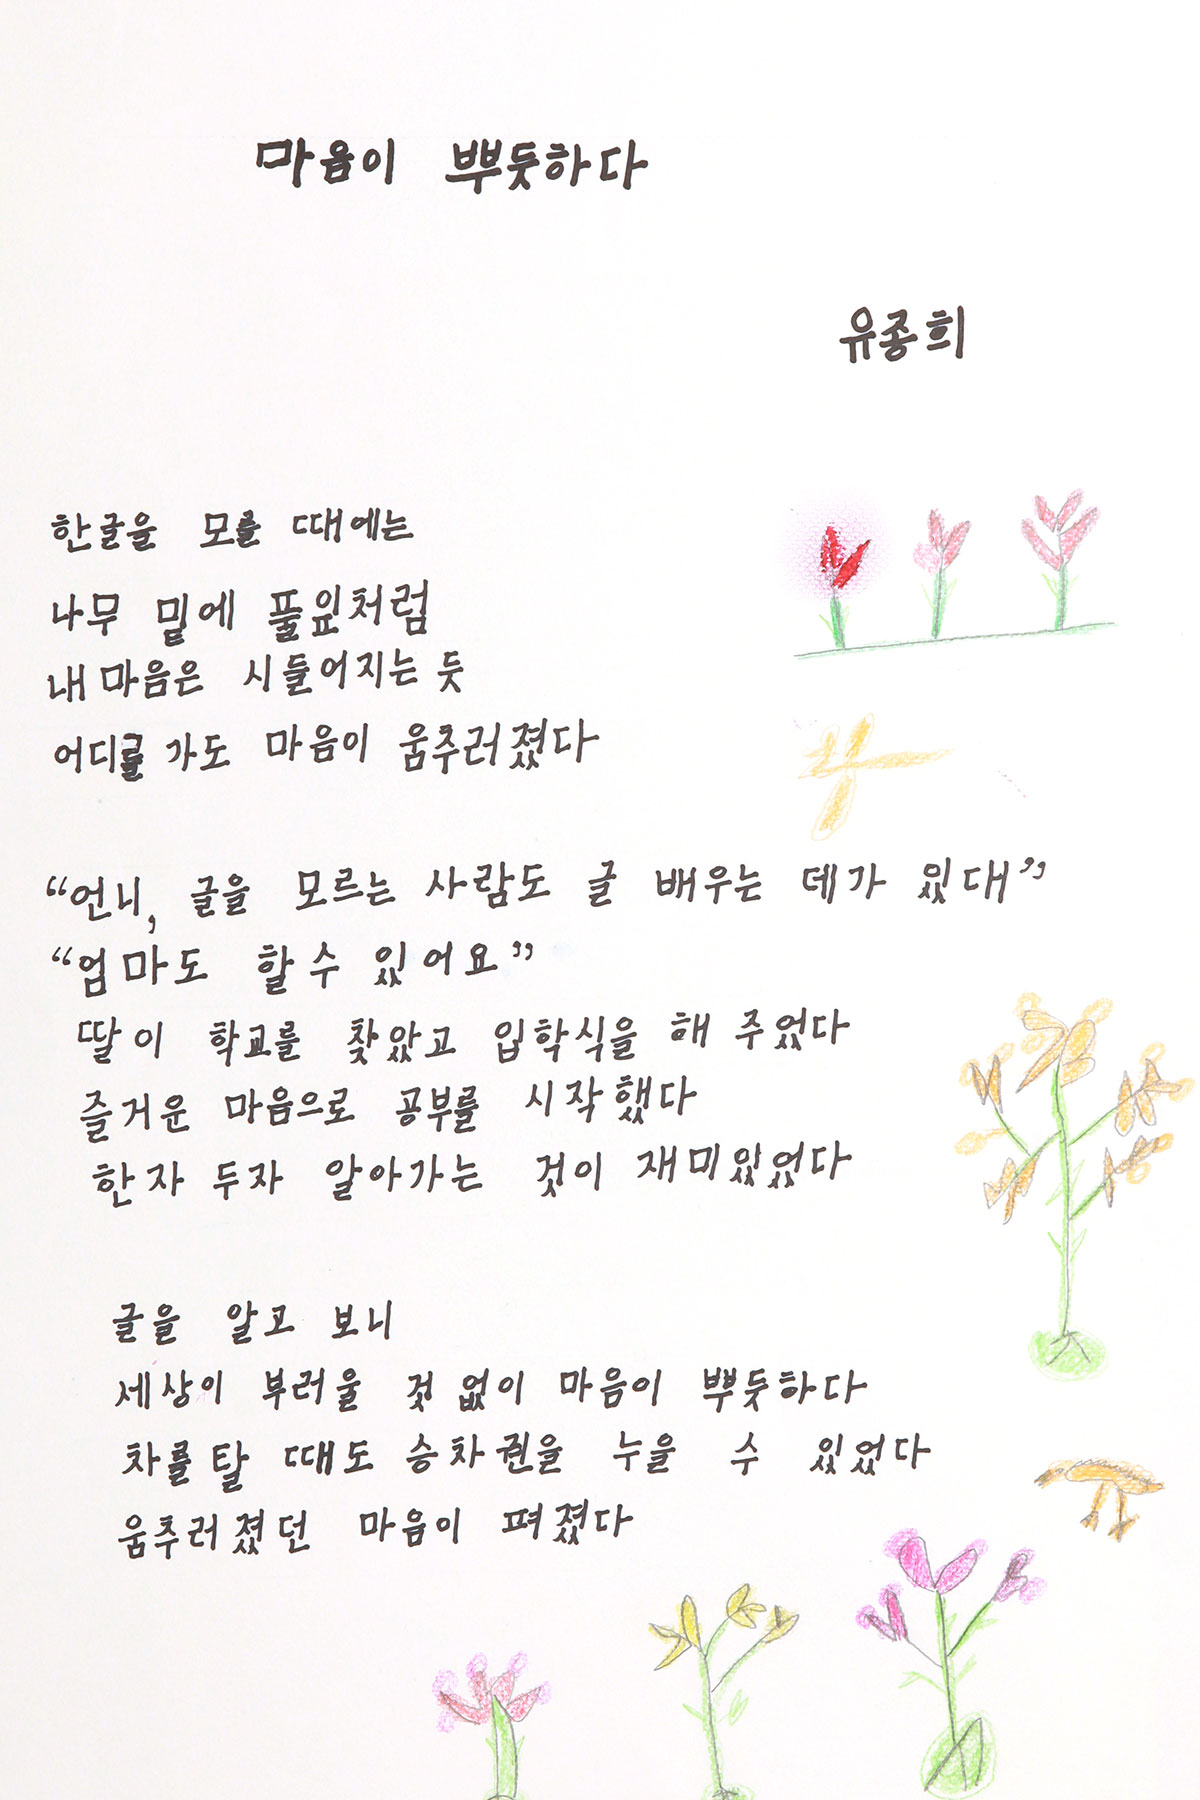 마음이 뿌듯하다
유종희
한글을 모를 때에는
나무 밑에 풀잎처럼
내 마음은 시들어지는 듯
어디를 가도 마음이 움추러졌다
“언니, 글을 모르는 사람도 글 배우는 데가 있대”
“엄마도 할 수 있어요”
딸이 학교를 찾았고 입학식을 해 주었다
즐거운 마음으로 공부를 시작했다
한자 두자 알아가는 것이 재미있었다
글을 알고 보니
세상이 부러울 것 없이 마음이 뿌듯하다
차를 탈 때도 승차권을 누울 수 있었다
움추러졌던 마음이 펴졌다